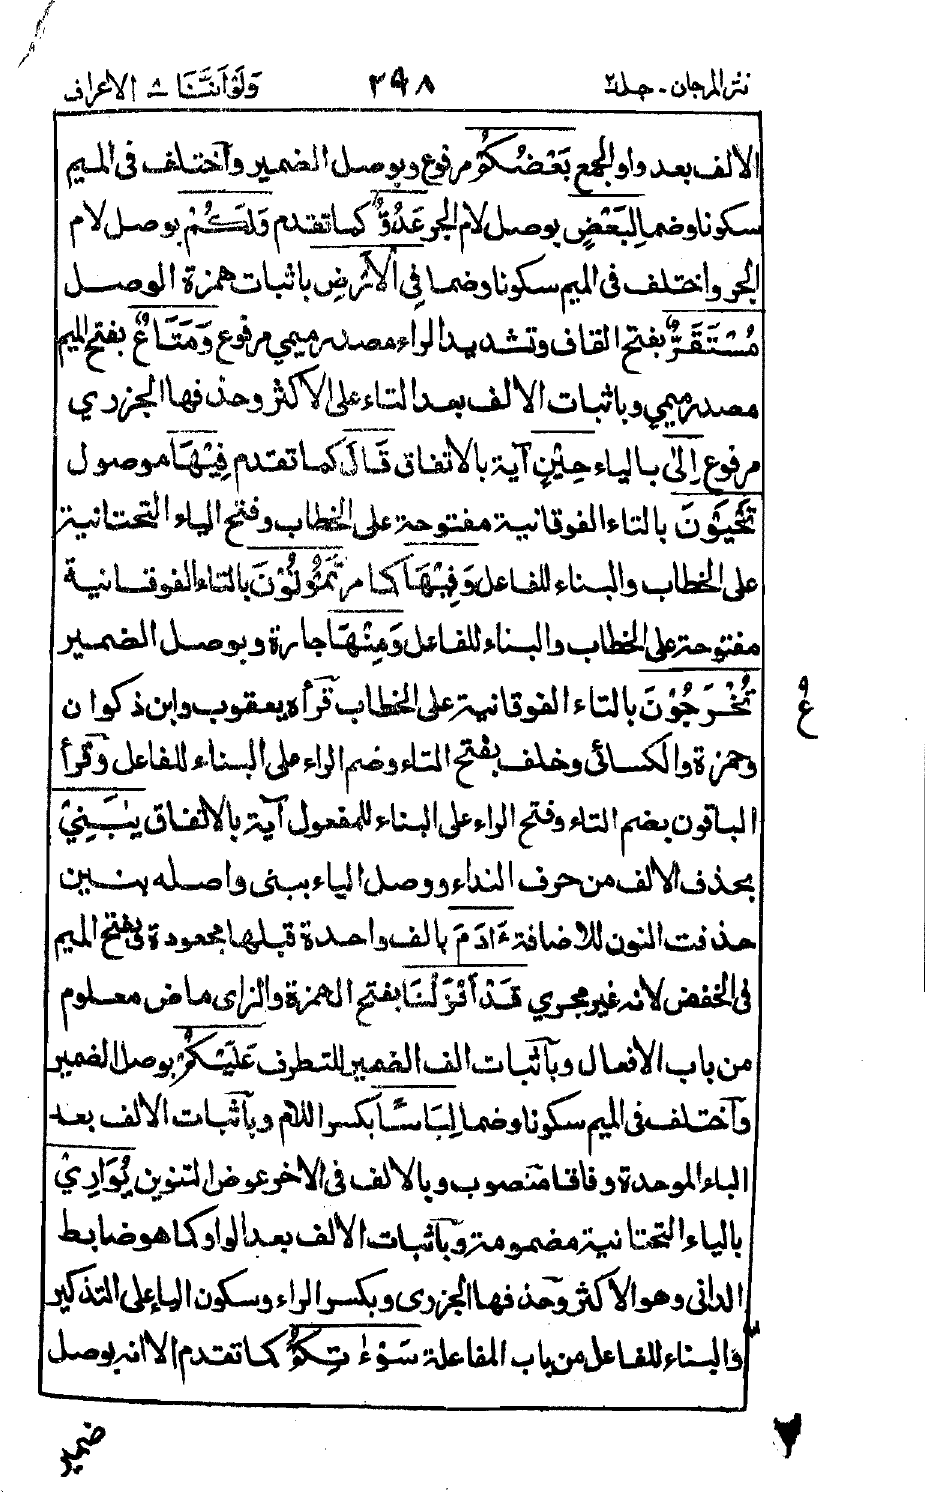 نثر المرجان - جلد٢ ٣٩٨ وَلَوْاَنَّنَا ٨ الاعراف
الالف بعد واو الجمع بَعْضُكُمْ مرفوع وبوصل الضمير واختلف فى الميم
سكونا وضما لِبَعْضٍ بوصل لام الجر عَدُوٌّ كما تقدم وَلَكُمْ بوصل لام
الجر واختلف فى الميم سكونا وضما فِي الْأَرْضِ باثبات همزة الوصل
مُسْتَقَرٌّ بفتح القاف وتشديد الراء مصدر ميمي مرفوع وَمَتَاعٌ بفتح الميم
مصدر ميمي وباثبات الالف بعد التاء على الاكثر وحذفها الجزري
مرفوع اِلٰى بالياء حِيْنٍ آية بالاتفاق قَالَ كما تقدم فِيْهَا موصول
تَحْيَوْنَ بالتاء الفوقانية مفتوحة على الخطاب وفتح الياء التحتانية
على الخطاب والبناء للفاعل وَفِيْهَا كما مر تَمُوْتُوْنَ بالتاء الفوقانية
مفتوحة على الخطاب والبناء للفاعل وَمِنْهَا جارة وبوصل الضمير
تُخْرَجُوْنَ بالتاء الفوقانية على الخطاب قرأه يعقوب وابن ذكوان
ع
وحمزة والكسائى وخلف بفتح التاء وضم الراء على البناء للفاعل وقرأ
الباقون بضم التاء وفتح الراء على البناء للمفعول آية بالاتفاق يٰبَنِيْ
بحذف الالف من حرف النداء ووصل الياء ببنى واصله بنين
حذفت النون للاضافة ءَادَمَ بالف واحدة قبلها مجعودة وبفتح الميم
فى الخفض لانه غير مجرى قَدْ اَنْزَلْنَا بفتح الهمزة والزاى ماض معلوم
من باب الافعال وباثبات الف الضمير للتطرف عَلَيْكُمْ بوصل الضمير
واختلف فى الميم سكونا وضما لِبَاسًا بكسر اللام وباثبات الالف بعد
الباء الموحدة وفاقا منصوب وبالالف فى الاخر عوض التنوين يُوَارِيْ
بالياء التحتانية مضمومة وباثبات الالف بعد الواو كما هو ضابط
الدانى وهو الاكثر وحذفها الجزرى وبكسر الراء وسكون الياء على التذكير
والبناء للفاعل من باب المفاعلة سَوْءٰتِكُمْ كما تقدم الا انه بوصل
ضمير